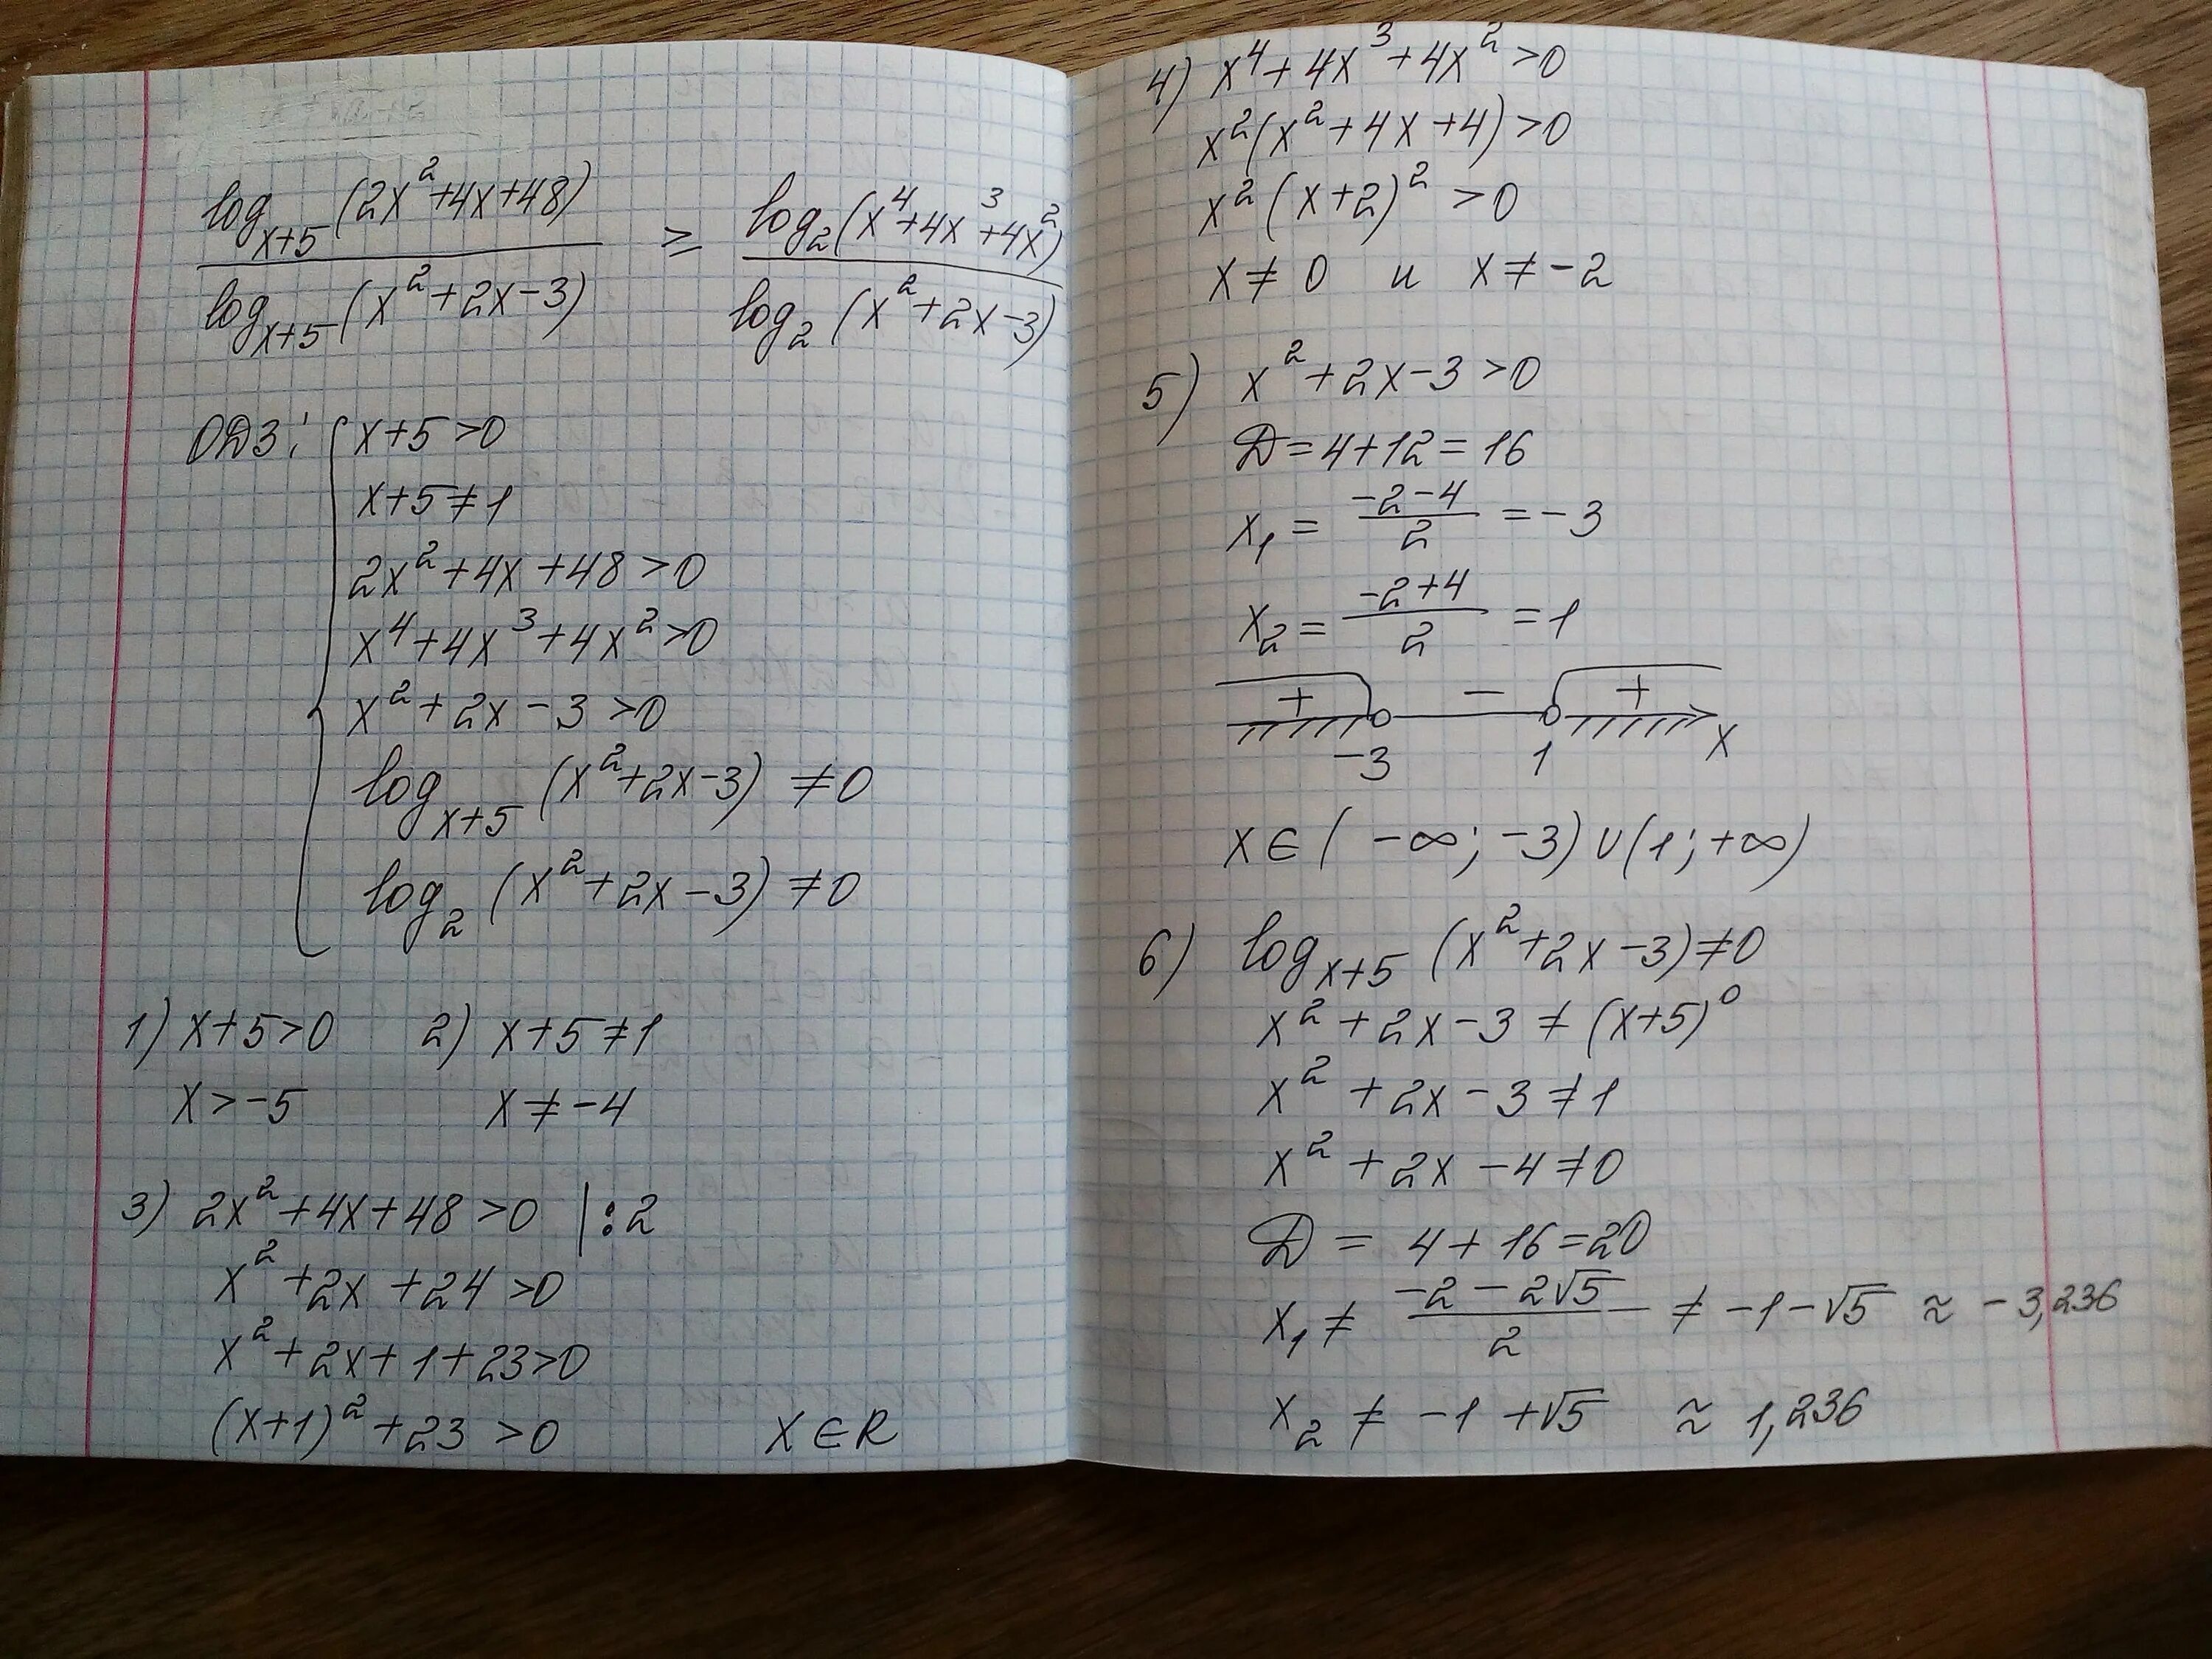 log_{x+5}(2x²+4x+48) / log_{x+5}(x²+2x-3) ≥ log_2(x⁴+4x³+4x²) / log_2(x²+2x-3)
ОДЗ: { x+5>0
x+5≠1
2x²+4x+48>0
x⁴+4x³+4x²>0
x²+2x-3>0
log_{x+5}(x²+2x-3)≠0
log_2(x²+2x-3)≠0
1) x+5>0 2) x+5≠1
x>-5 x≠-4
3) 2x²+4x+48>0 |:2
x²+2x+24>0
x²+2x+1+23>0
(x+1)²+23>0 x∈R
4) x⁴+4x³+4x²>0
x²(x²+4x+4)>0
x²(x+2)²>0
x≠0 и x≠-2
5) x²+2x-3>0
D=4+12=16
x₁=(-2-4)/2=-3
x₂=(-2+4)/2=1
+ - +
-3 1 x
x∈(-∞;-3)∪(1;+∞)
6) log_{x+5}(x²+2x-3)≠0
x²+2x-3≠(x+5)⁰
x²+2x-3≠1
x²+2x-4≠0
D=4+16=20
x₁≠(-2-2√5)/2≠-1-√5≈-3,236
x₂≠-1+√5≈1,236